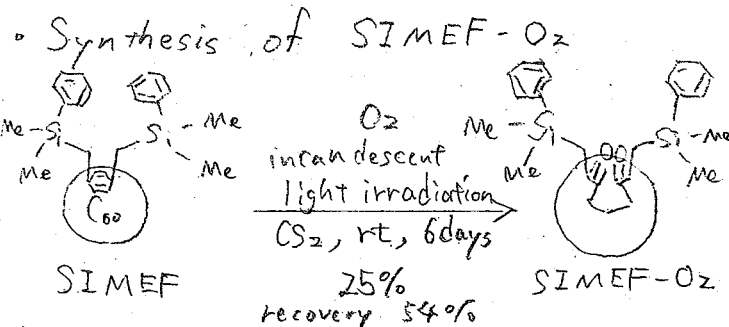 • Synthesis of SIMEF-O2
Me Si Me Si Me Me
C60
SIMEF
O2
incandescent
light irradiation
CS2, rt, 6days
25%
recovery 54%
Me Si Me Si Me Me
O O
SIMEF-O2